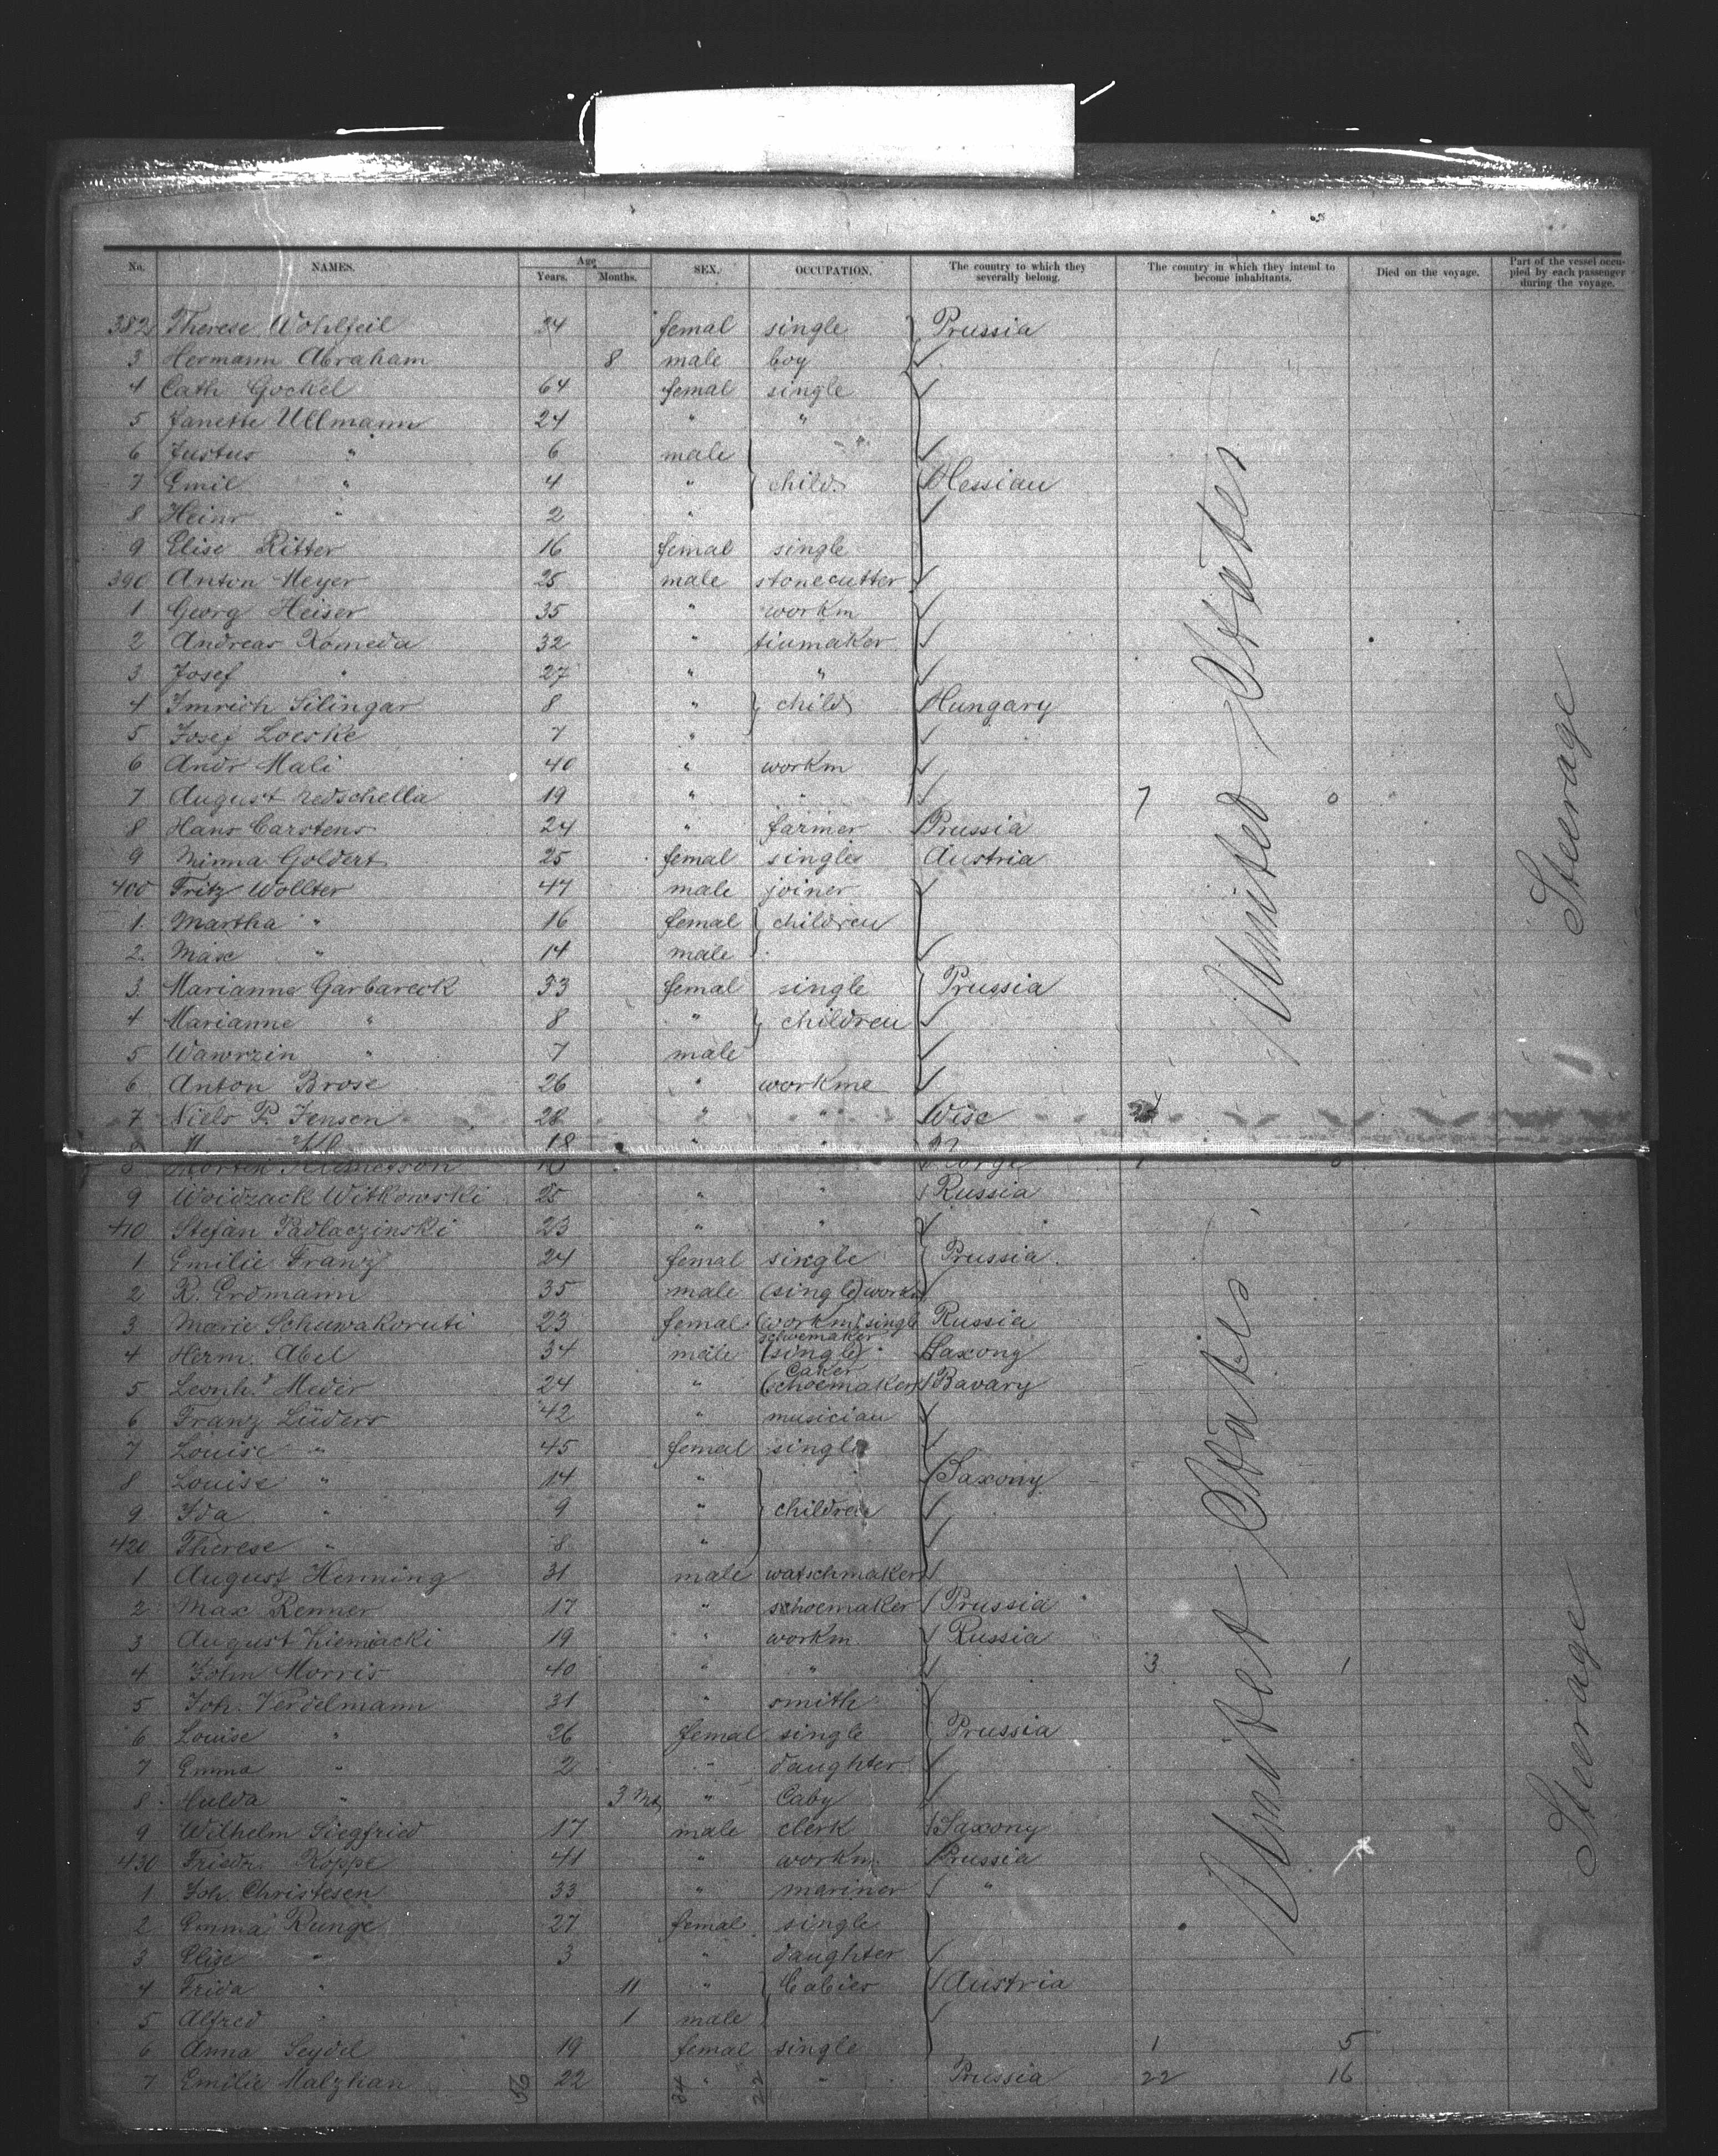 No. NAMES. Age Years. Months. SEX. OCCUPATION. The country to which they severally belong. The country in which they intend to become inhabitants. Died on the voyage. Part of the vessel occupied by each passenger during the voyage.
382 Therese Wohlfeil 34 femal single Prussia
3 Hermann Abraham 8 male boy
4 Cath Gockel 64 femal single
5 Janette Ullmann 24 " "
6 Justus " 6 male "
7 Emil " 4 " child Hessian
8 Heinr " 2 "
9 Elise Ritter 16 femal single
390 Anton Meyer 25 male stonecutter
1 Georg Heiser 35 " workm
2 Andreas Komeda 32 " tinmaker
3 Josef " 27 " "
4 Imrich Silingar 8 " child Hungary
5 Josef Loeske 7 "
6 Andr Mali 40 " workm
7 August 19 " " 7 0
8 Hans Carstens 24 " farmer Prussia
9 Minna Goldert 25 femal single Austria
400 Fritz Wollter 47 male joiner
1. Martha " 16 femal children
2. Max " 14 male
3. Marianna Garbareck 33 femal single Prussia
4 Marianne " 8 " children
5 Wawrzin " 7 male
6 Anton Brose 26 " workme
7 Niels P. Jensen 28 " " Wisc
8 Morten 18 " " Norge 1 0
9 Woidzack Witkowski 25 " " Russia
410 Stefan Padlaczinski 23 " "
1 Emilie Franz 24 femal single Prussia
2 R. Erdmann 35 male (single) workm
3 Marie Schuwakoruti 23 femal (workm) single Russia
4 Herm. Abel 34 male (single) schuemaker Saxony
5 Leonhd Meder 24 " (schoemaker) caker Bavary
6 Franz Lüders 42 " musician
7 Louise " 45 femal single
8 Louise " 14 " Saxony
9 Ida " 9 " children
420 Therese " 8 "
1 August Henning 31 male watschmaker
2 Max Renner 17 " schoemaker Prussia
3 August Ziemacki 19 " workm Russia
4 John Morris 40 " " 3 1
5 Joh. Verdelmann 31 " smith
6 Louise " 26 femal single Prussia
7 Emma " 2 " daughter
8 Hulda " 3 Mts " Caby
9 Wilhelm Siegfried 17 male clerk Saxony
430 Friedr. Koppe 41 " workm Prussia
1 Joh. Christesen 33 " mariner "
2 Emma Runge 27 femal single
3 Elise " 3 " daughter
4 Frida " 11 " Cabies Austria
5 Alfred " 1 male
6 Anna Seydel 19 femal single 1 5
7 Emilie Malzhan 22 " " Prussia 22 16
56 34 22
United States
Steerage
United States
Steerage